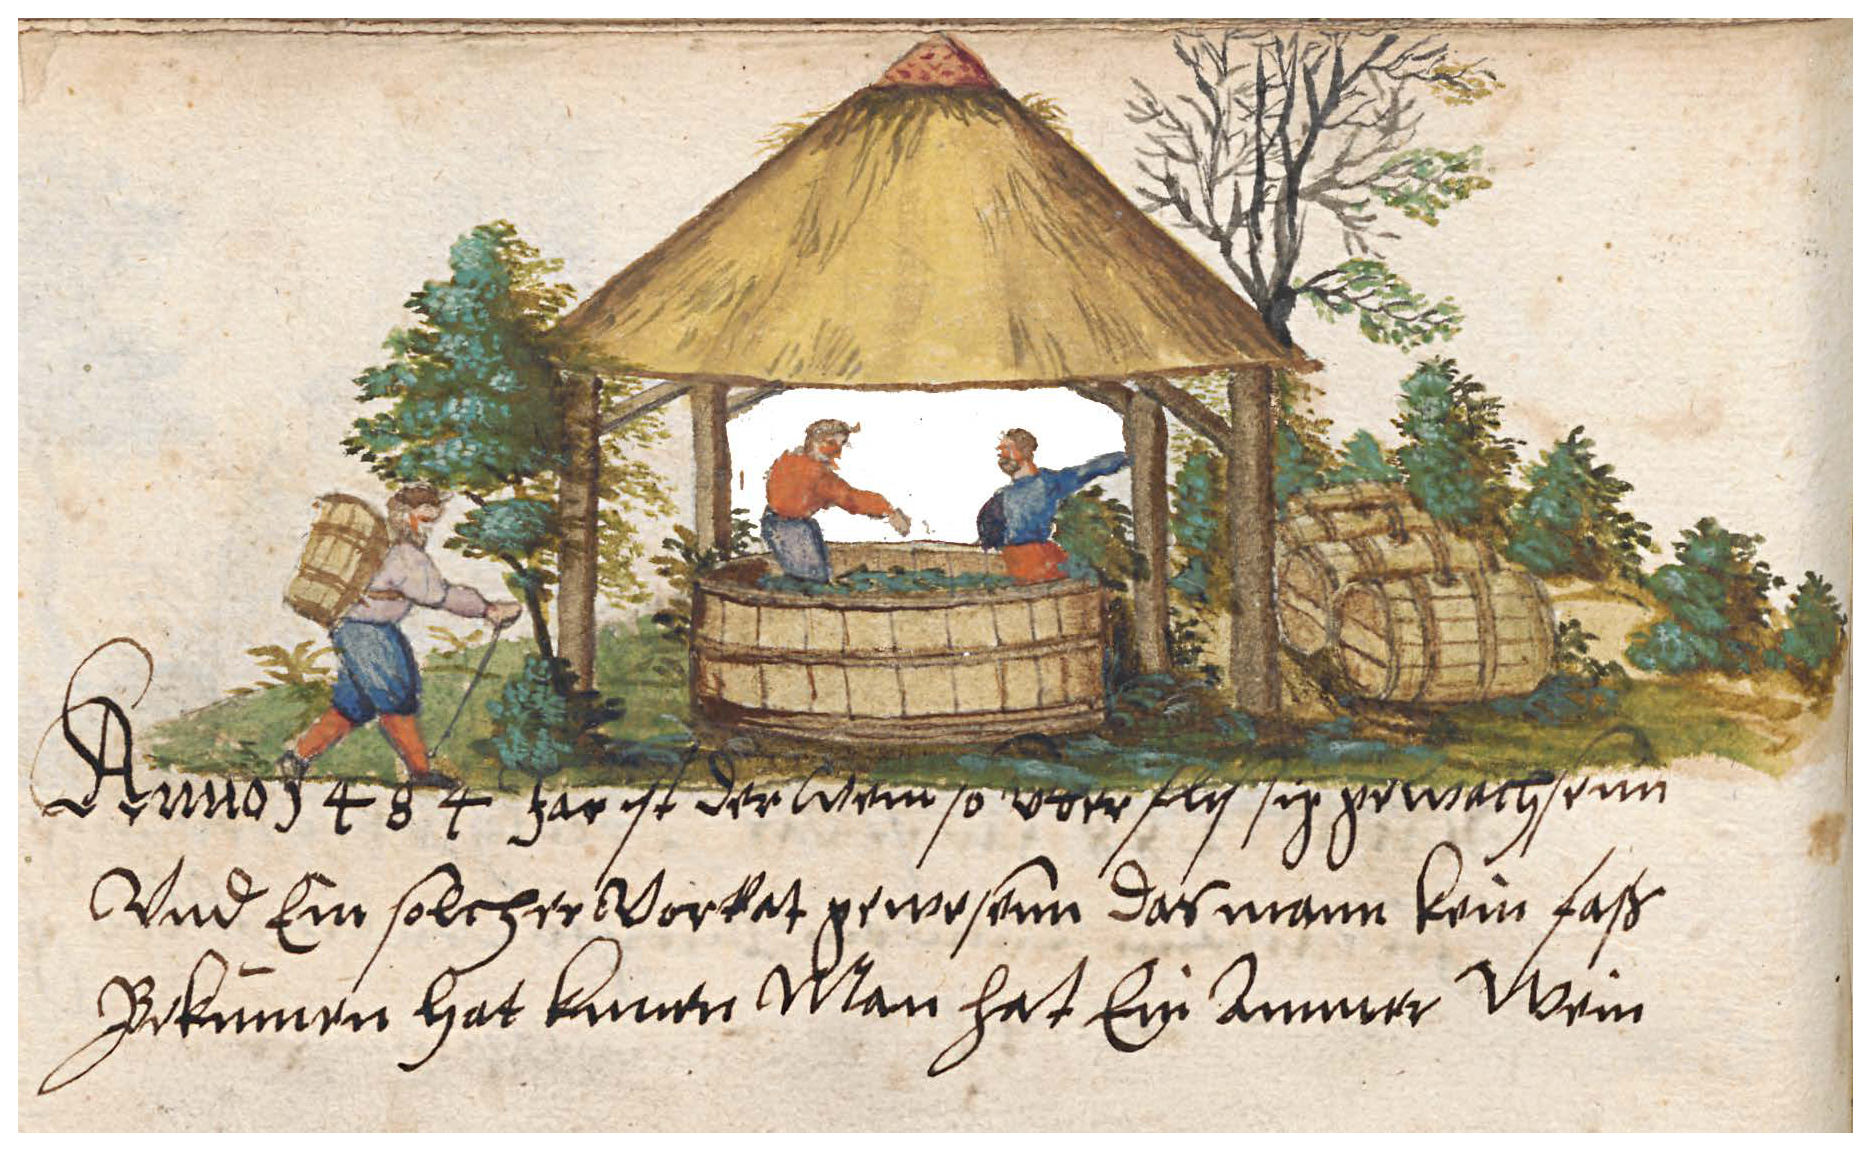 Anno 1484 Jar ist der Wein so vberflyssig gewachsenn
Vnd Ein solcher Vorrat gewesenn das mann kein faß
Bekumen hat kinnen Man hat Ein Ammer Wein